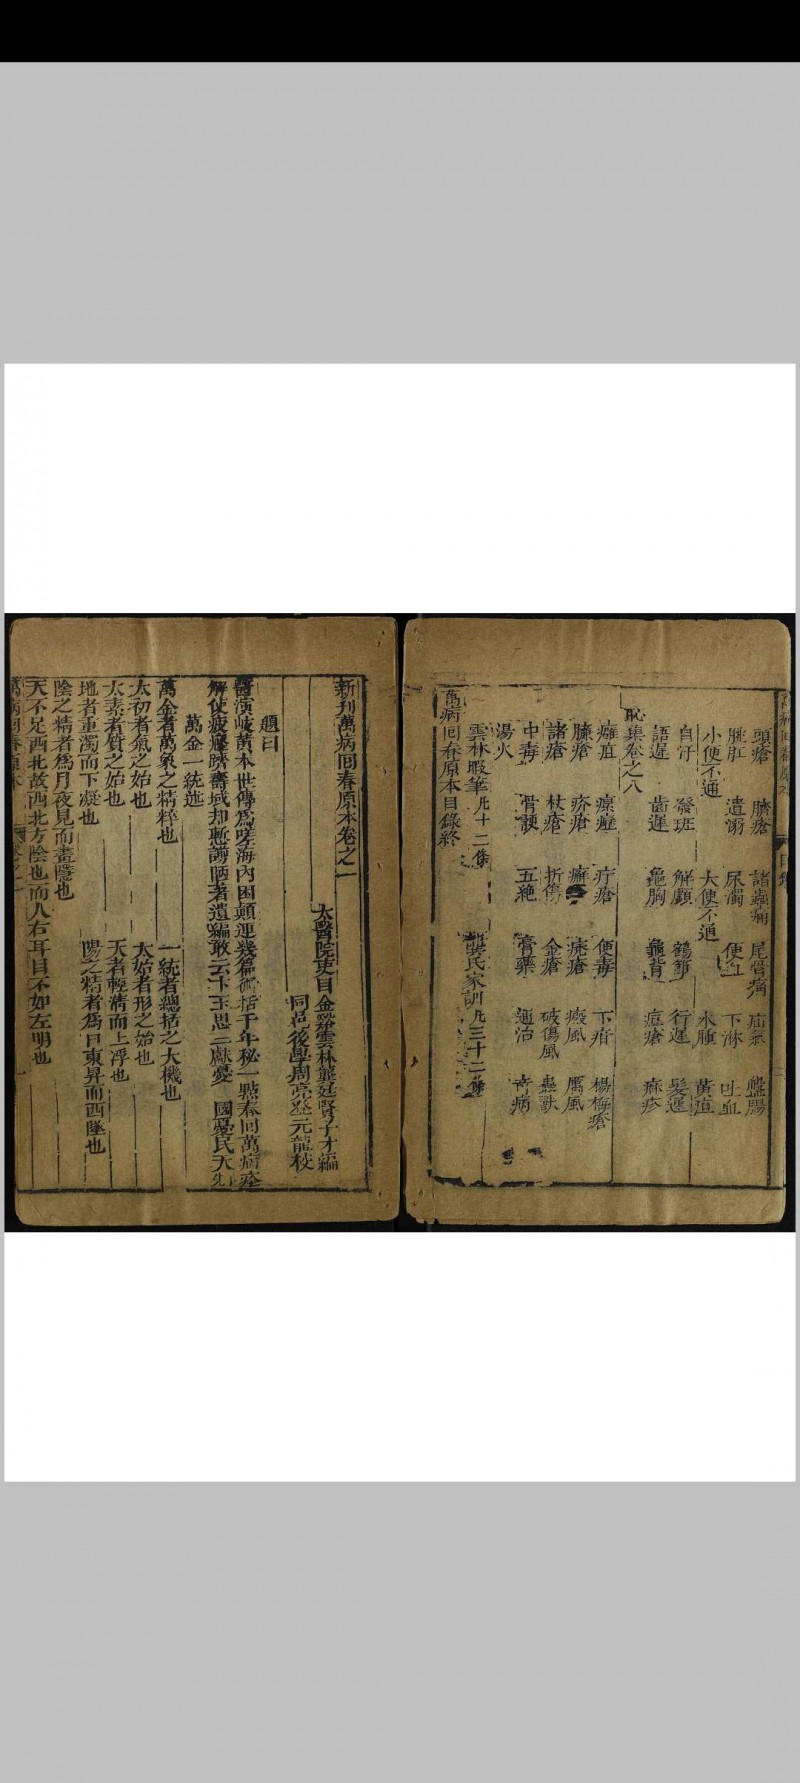 頭瘡 臍瘡 諸蟲痛 尾骨痛 疝氣 盤腸
脫肛 遺溺 尿濁 便血 下淋 吐血
小便不通 大便不通 水腫 黃疸
自汗 發斑 解顱 鶴節 行遲 髮遲
語遲 齒遲 龜胸 龜背 痘瘡 麻疹
卷之八
癰疽 瘰癧 疔瘡 便毒 下疳 楊梅瘡
臁瘡 疥瘡 癬 疣瘡 癜風 厲風
諸瘡 杖瘡 折傷 金瘡 破傷風 蟲獸
中毒 骨骾 五絕 膏藥 通治 奇病
湯火
雲林暇筆凡十二條 龔氏家訓凡三十二條
萬病回春原本目錄終
新刊萬病回春原本卷之一
太醫院吏目金谿雲林龔廷賢子才編
同邑後學周亮登元龍校
題曰
醫演岐黃本世傳爲嗟海內困顛連幾篇術括千年秘一點春回萬病痊
解使疲癃躋壽域却慙謭陋著遺編敢云卞玉思三獻憂國憂民天
萬金一統述
萬金者萬象之精粹也 一統者總括之大機也
太初者氣之始也 太始者形之始也
太素者質之始也 天者輕清而上浮也
地者重濁而下凝也 陽之精者爲日東昇而西墜也
陰之精者爲月夜見而晝隱也
天不足西北故西北方陰也而人右耳目不如左明也
萬病回春原本